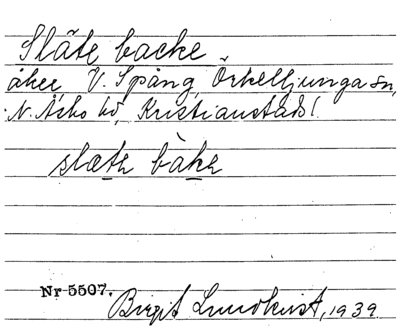 Släte backe
åker V. Spång, Örkelljunga sn,
N. Åsbo hd, Kristianstads l.
slæte bàke
Nr 5507.
Birgit Lundkvist, 1939.